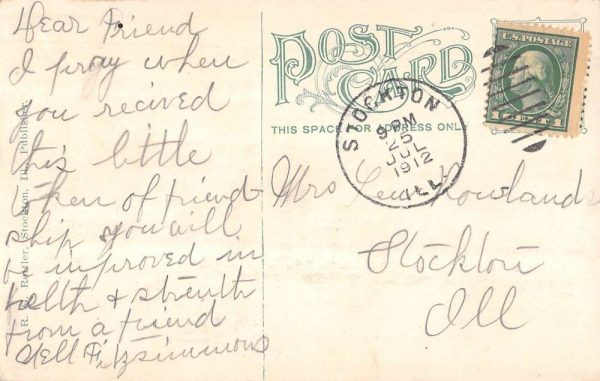 Dear Friend
I pray when
you recived
this little
token of friend
ship you will
be improved in
helth & strenth
from a friend
Nell Fitzsimmons
Stockton, Ill. Publisher
POST
CARD
THIS SPACE FOR ADDRESS ONLY
STOCKTON
9 PM
25
JUL
1912
ILL
U.S. POSTAGE
Mrs Rowland
Stockton
Ill